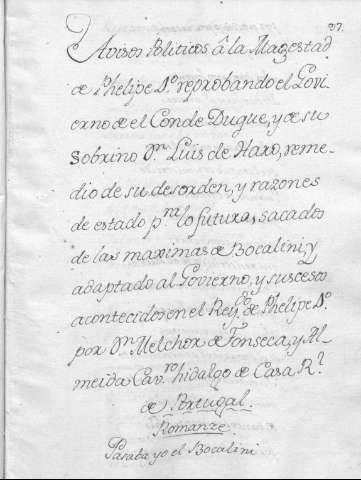 87.
Avisos Politicos â la Magestad
de Phelipe 4.º reprobando el Govi-
erno de el Conde Duque, y de su
Sobrino Dn. Luis de Haro, reme-
dio de su desorden, y razones
de estado pra. lo futuro, sacados
de las maximas de Bocalini, y
adaptado al Govierno, y sucesos
acontecidos en el Reydo. de Phelipe 4.º
por Dn. Melchor de Fonseca, y Al-
meida Cavro. hidalgo de Casa Rl.
de Portugal.
Romanze.
Pasaba yo el Bocalini